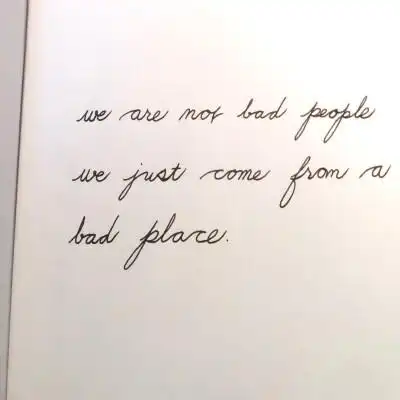 we are not bad people
we just come from a
bad place.